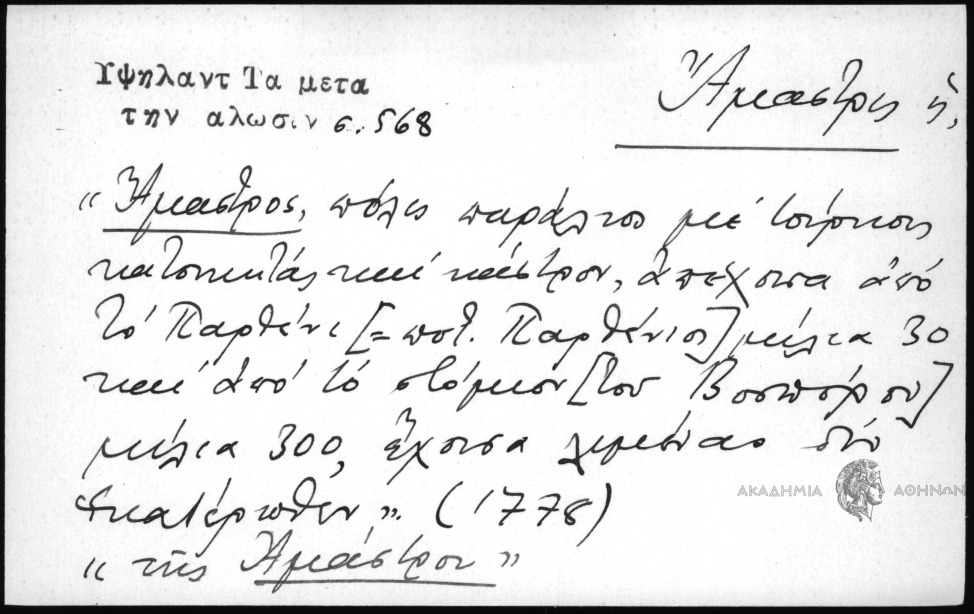 Υψηλαντ Τα μετα
την αλωσιν σ. 568
Ἄμαστρις ἡ,
“Ἄμαστρος, πόλις παράλιος μέ τούρκους
κατοικητάς καί κάστρον, ἀπέχουσα ἀπό
τό Παρθένι [=ποτ. Παρθένιος] μίλια 30
καί ἀπό τό στόμιον [τοῦ Βοσπόρου]
μίλια 300, ἔχουσα λιμένας δύο
ἑκατέρωθεν”. (1778)
“τῆς Ἀμάστρου”
ΑΚΑΔΗΜΙΑ ΑΘΗΝΩΝ